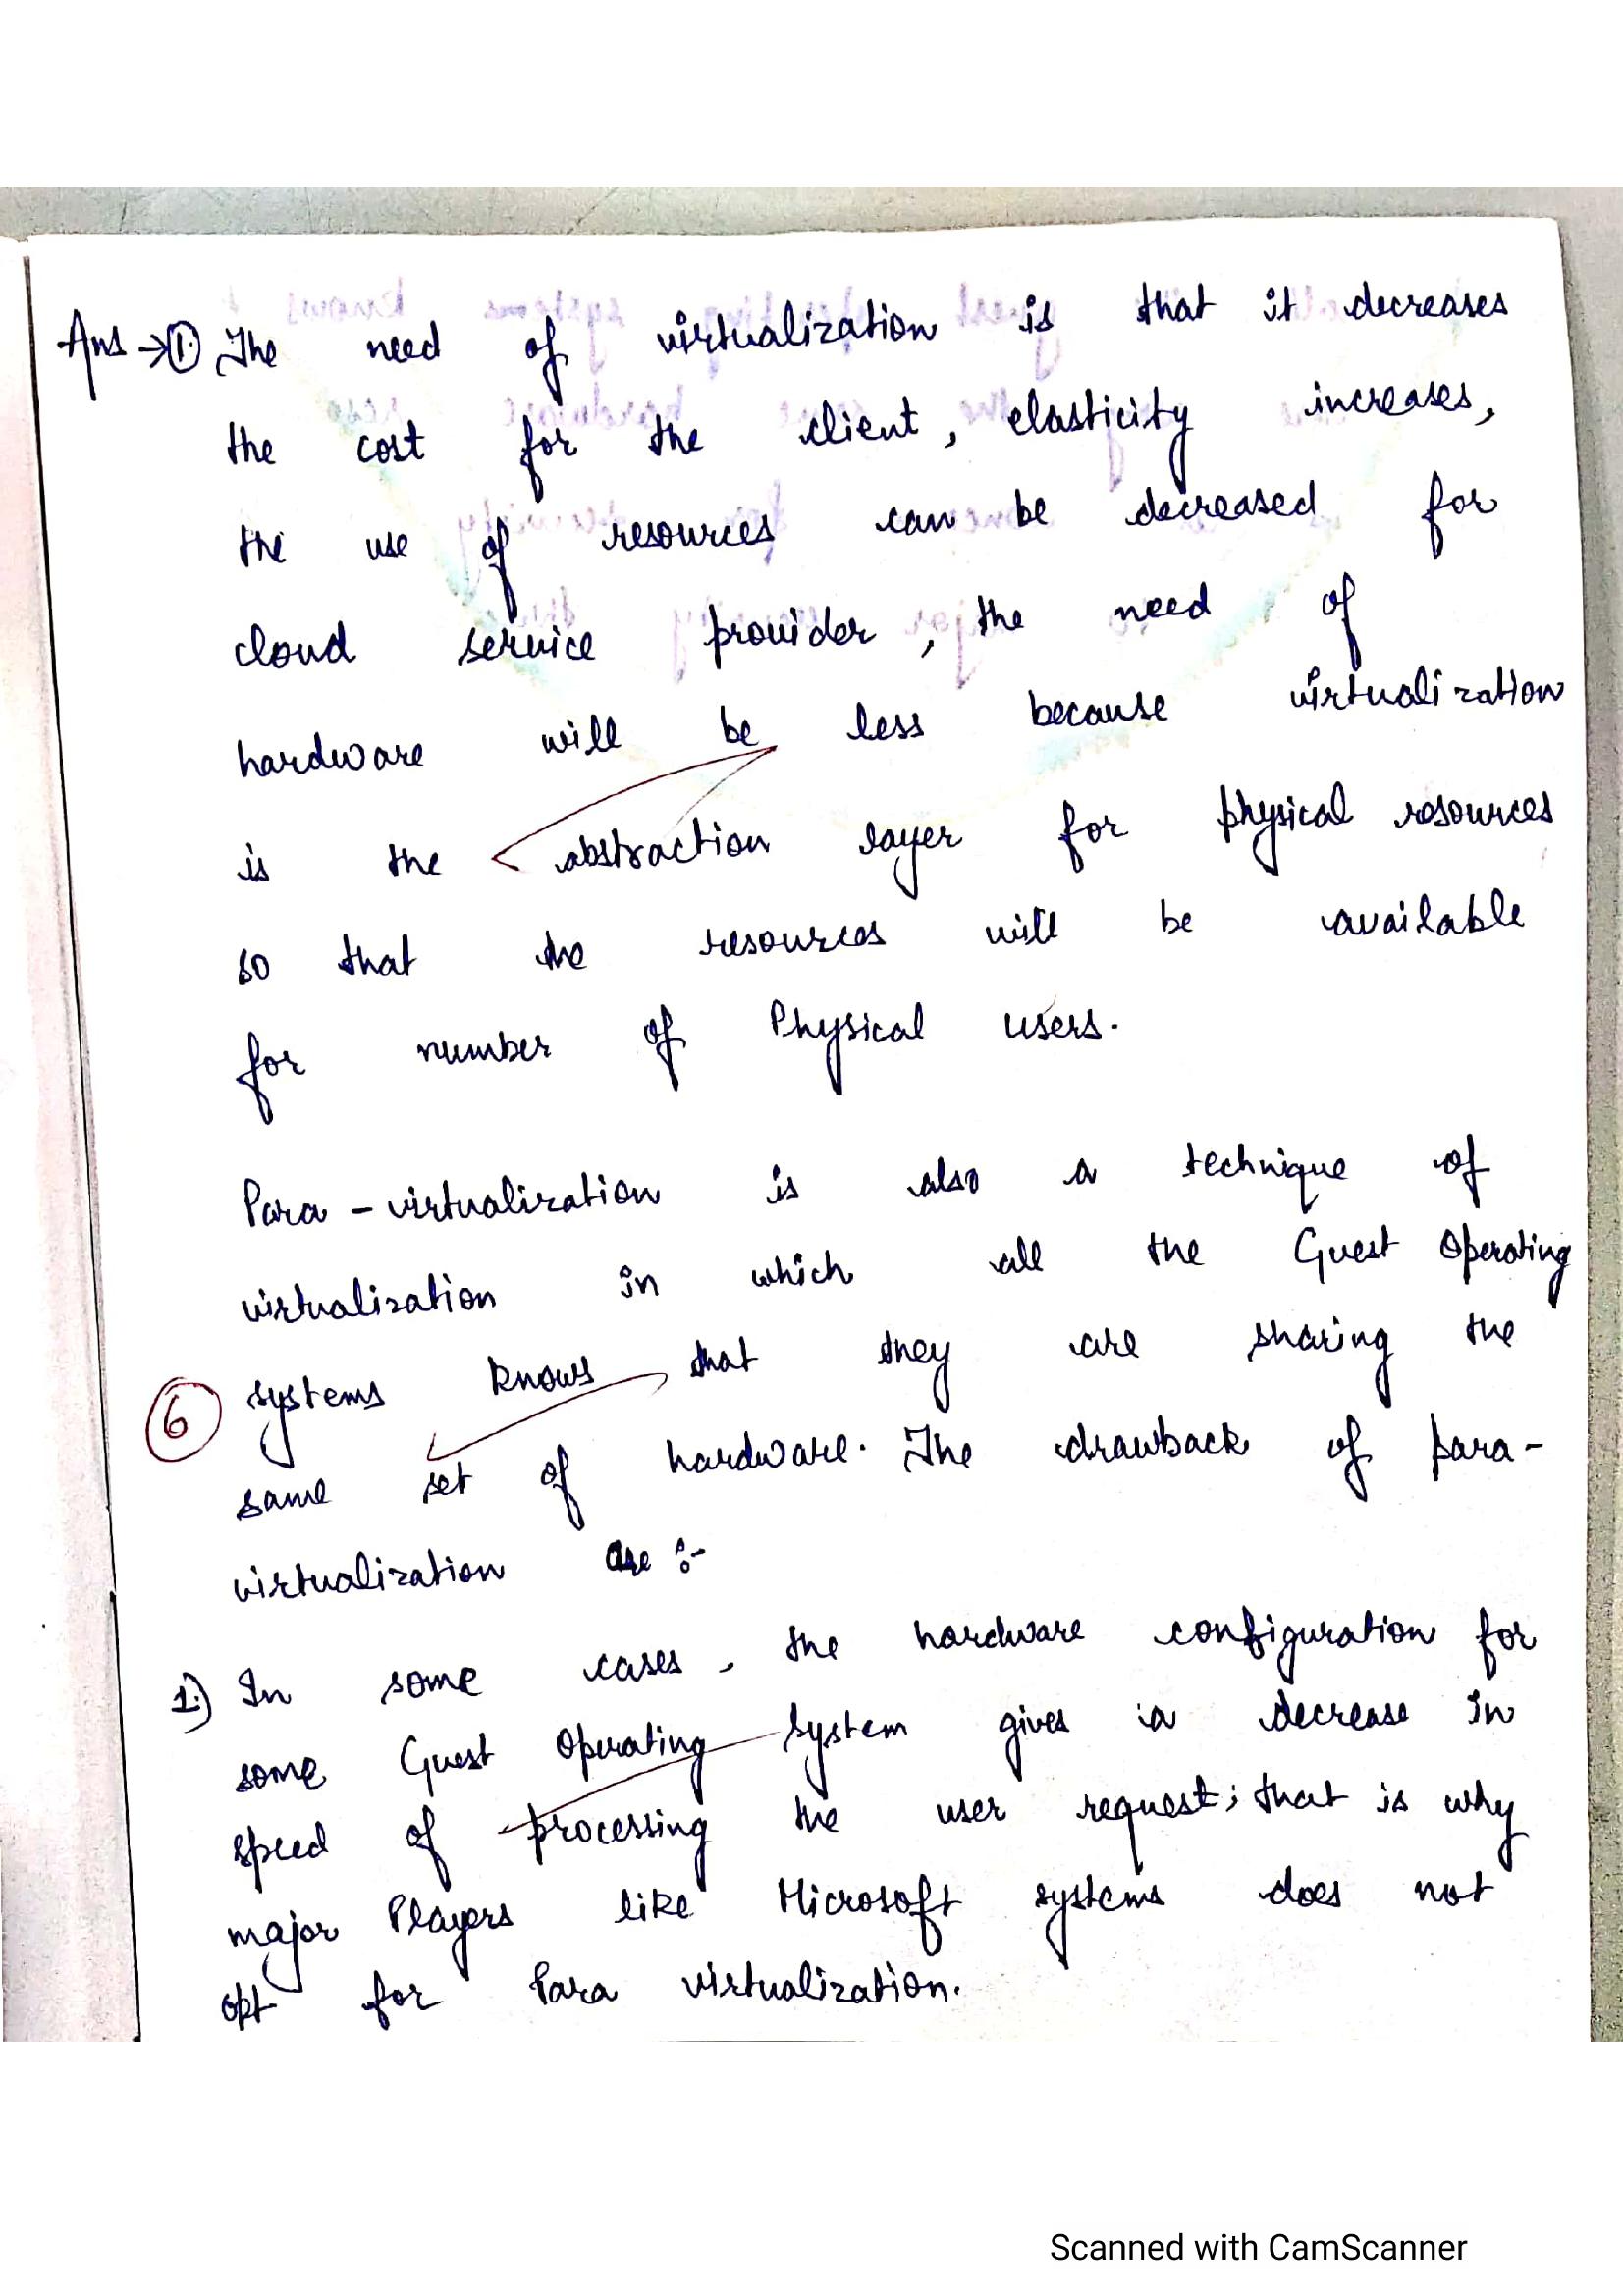 Ans → ① The need of virtualization is that it decreases
the cost for the client, elasticity increases,
the use of resources can be decreased for
cloud service provider, the need of
hardware will be less because virtualization
is the abstraction layer for physical resources
so that the resources will be available
for number of Physical users.
Para - virtualization is also a technique of
virtualization in which all the Guest Operating
systems knows that they are sharing the
6
same set of hardware. The drawback of para-
virtualization are :-
1.) In some cases, the hardware configuration for
some Guest Operating System gives a decrease in
speed of processing the user request; that is why
major Players like Microsoft systems does not
opt for Para virtualization.
Scanned with CamScanner